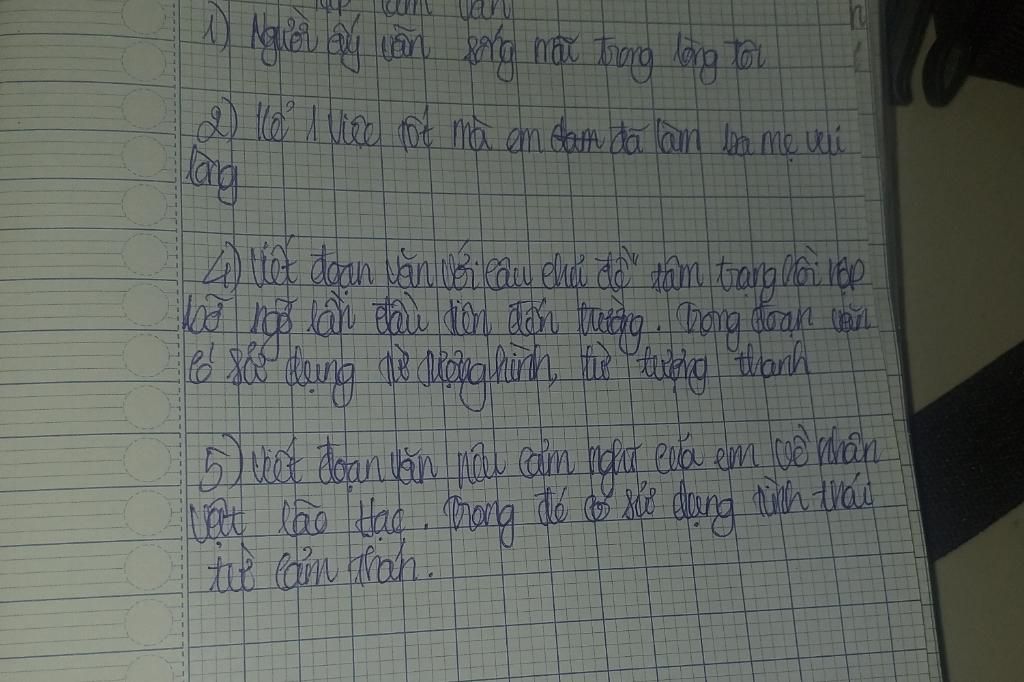 tập làm văn
1) Người ấy vẫn sống mãi trong lòng tôi
2) Kể 1 việc tốt mà em đam đã làm ba mẹ vui
lòng
4) Viết đoạn văn với câu chủ đề "tâm trạng hồi hộp
bỡ ngỡ lần đầu tiên đến trường. Trong đoạn văn
có sử dụng từ tượng hình, từ tượng thanh
5) Viết đoạn văn nêu cảm nghĩ của em về nhân
vật Lão Hạc. Trong đó có sử dụng tình thái
từ cảm thán.